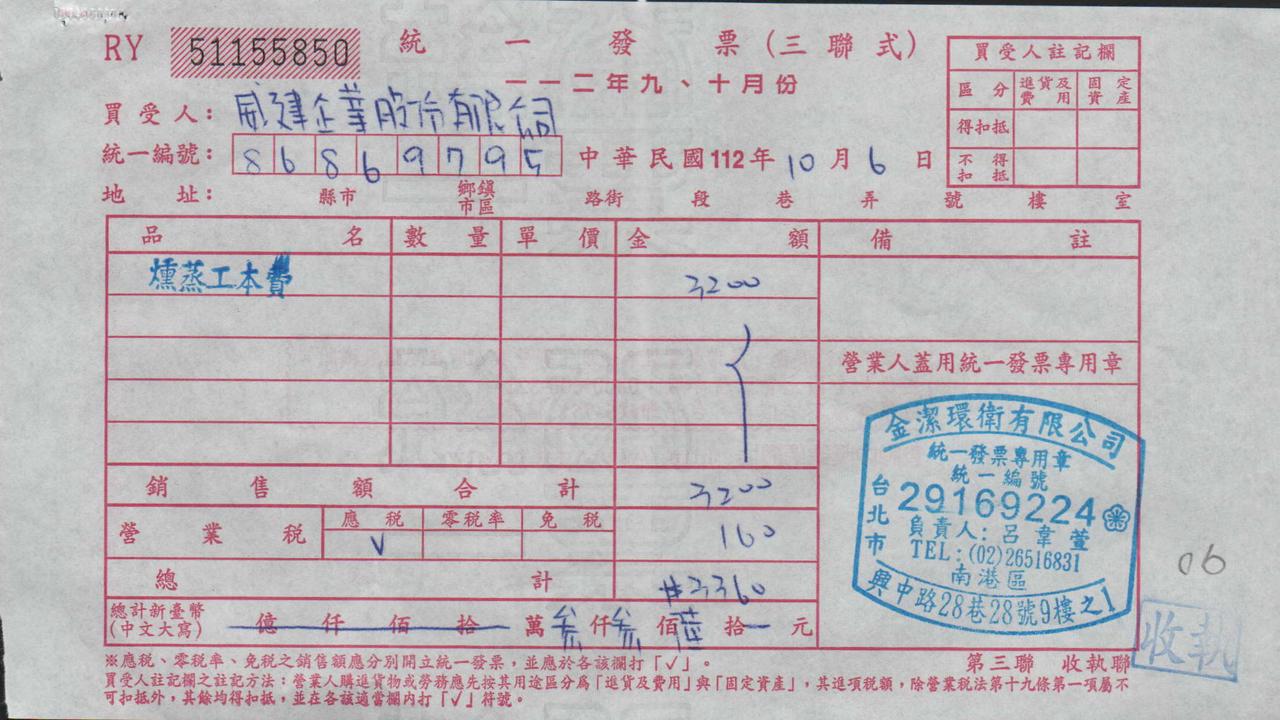 RY 51155850 統一發票(三聯式)
一一二年九、十月份
買受人註記欄
區分 進貨及費用 固定資產
得扣抵
不得扣抵
買受人: 威建企業股份有限公司
統一編號: 86869795 中華民國112年10月6日
地址: 縣市 鄉鎮市區 路街 段 巷 弄 號 樓 室
品名 數量 單價 金額 備註
燻蒸工本費 3200
營業人蓋用統一發票專用章
銷售額合計 3200
營業稅 應稅 零稅率 免稅 160
V
總計 #3360
總計新臺幣(中文大寫) 億仟佰拾萬参仟参佰陸拾元
金潔環衛有限公司
統一發票專用章
統一編號
29169224
負責人:呂韋萱
TEL:(02)26516831
台北市
南港區
興中路28巷28號9樓之1
06
收執
※應稅、零稅率、免稅之銷售額應分別開立統一發票,並應於各該欄打「✓」。
第三聯 收執聯
買受人註記欄之註記方法:營業人購進貨物或勞務應先按其用途區分為「進貨及費用」與「固定資產」,其進項稅額,除營業稅法第十九條第一項屬不
可扣抵外,其餘均得扣抵,並在各該適當欄內打「✓」符號。